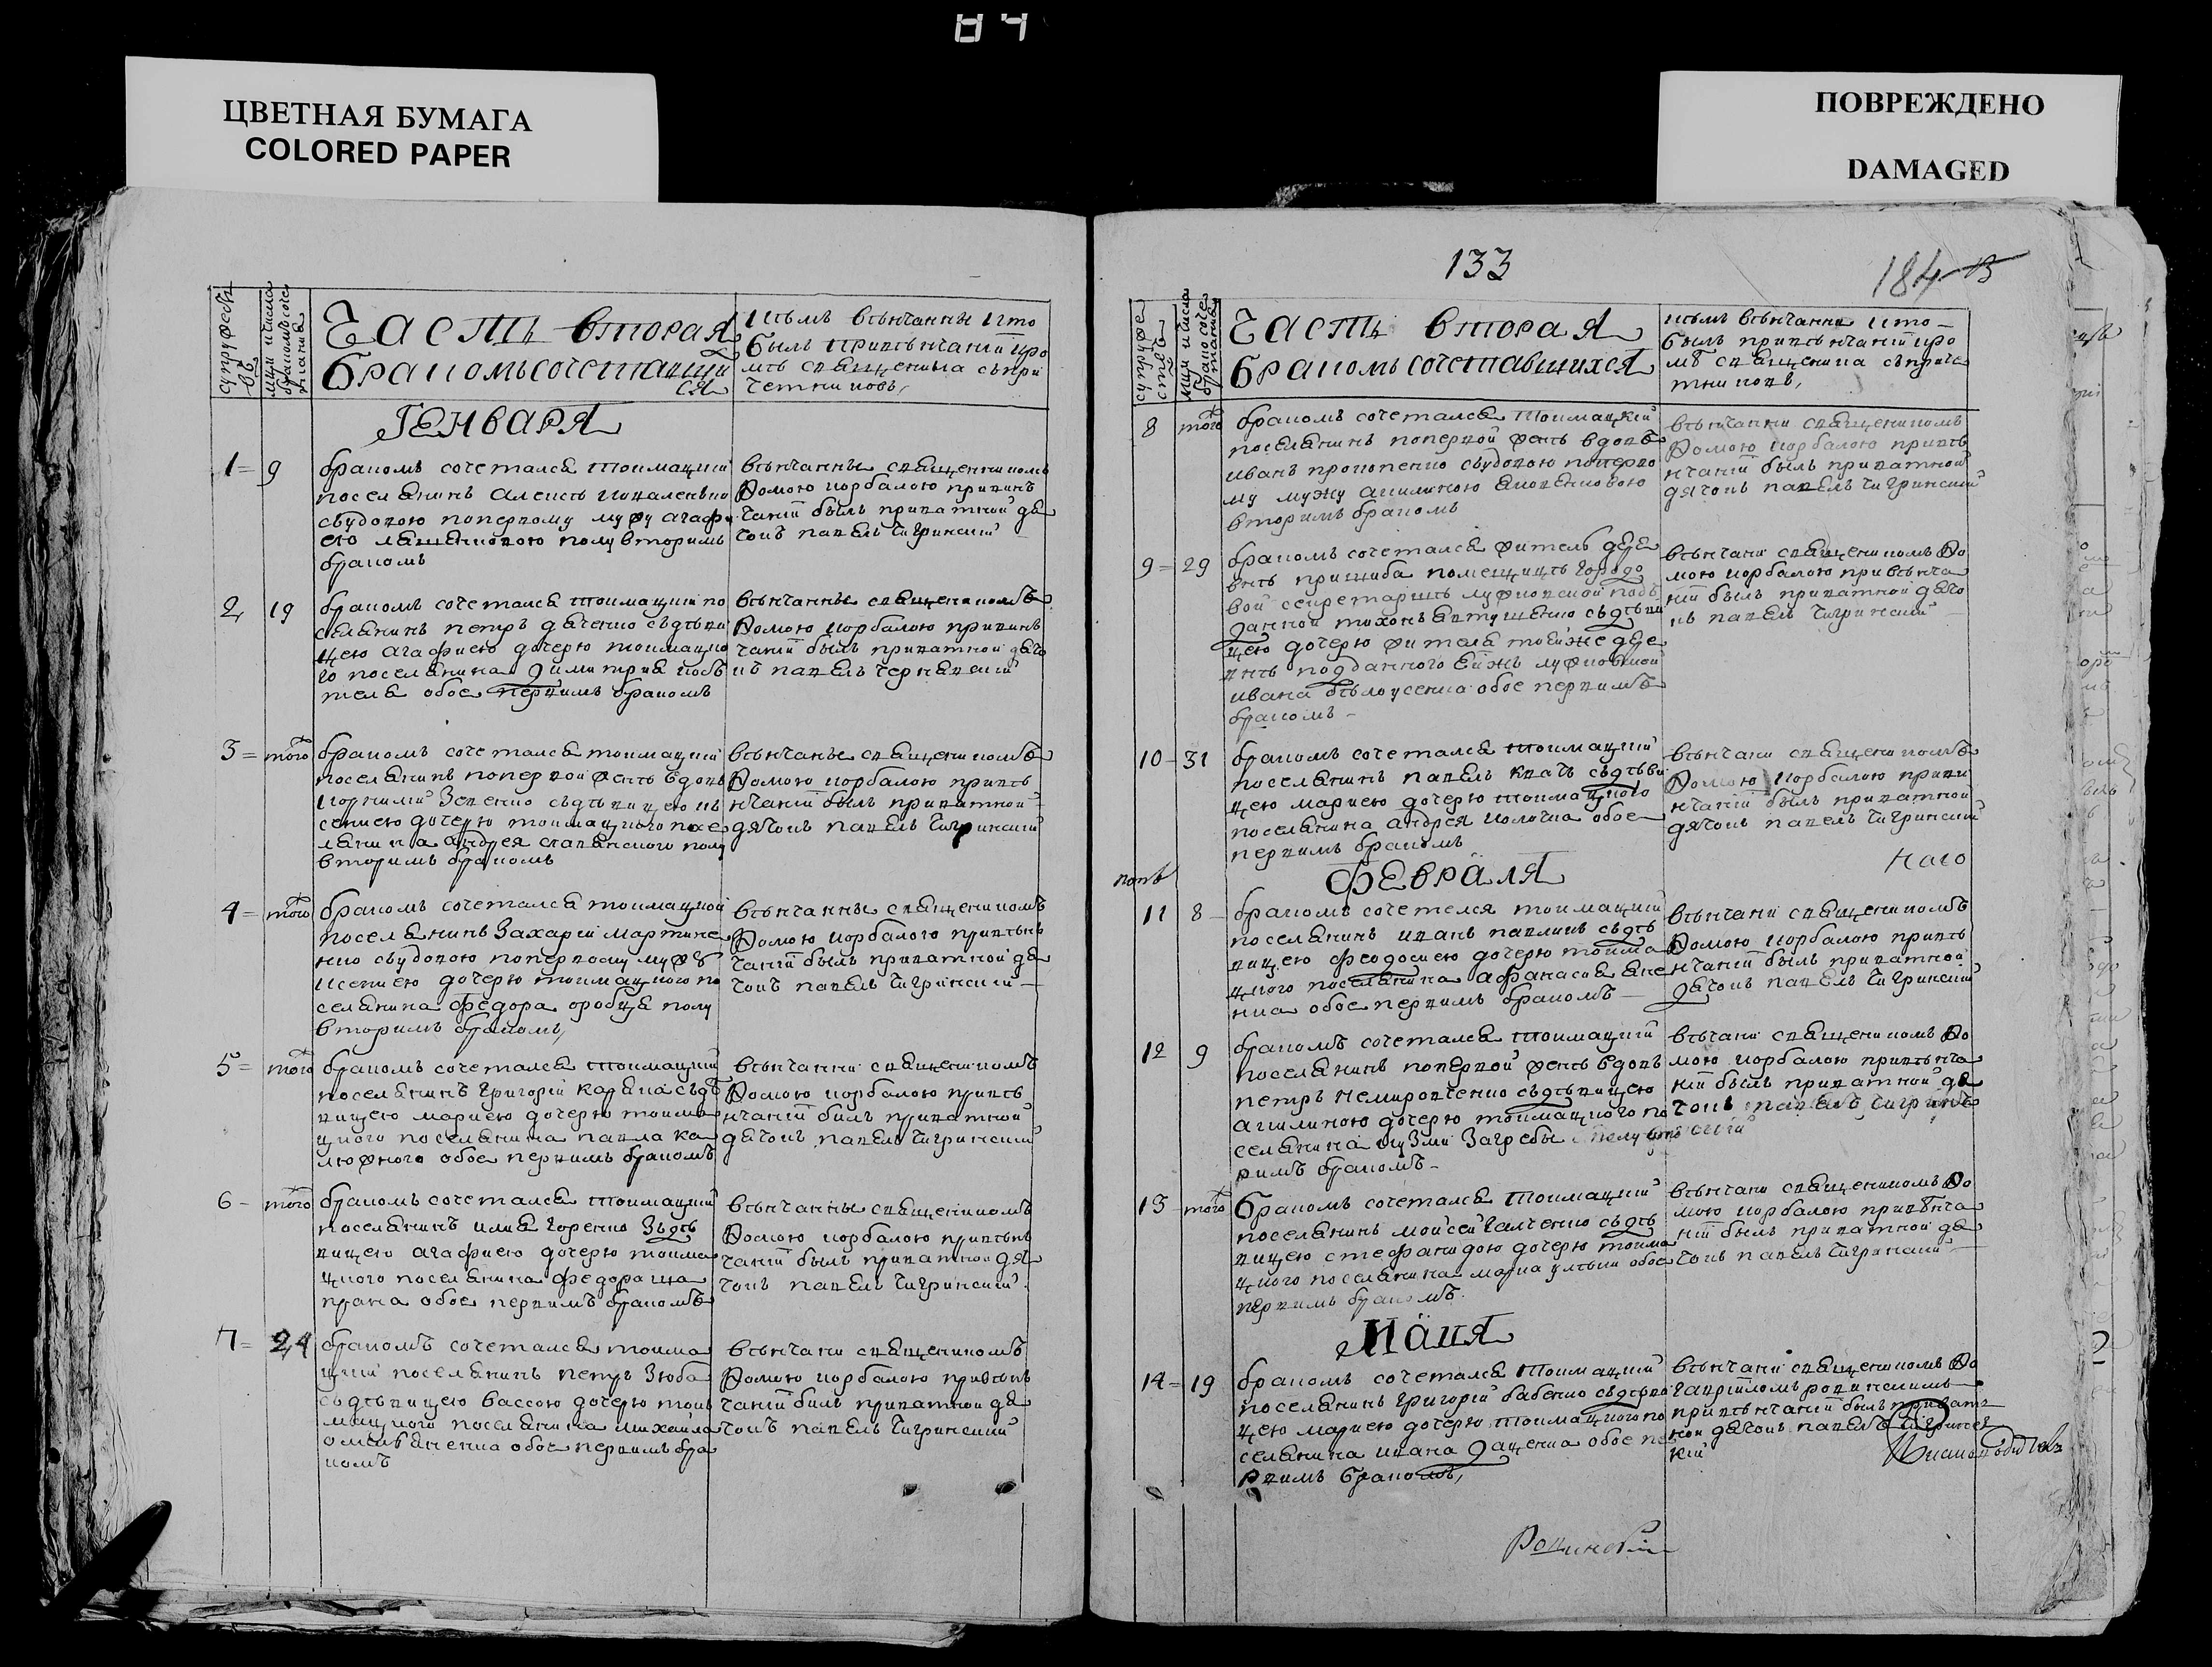 84
ЦВЕТНАЯ БУМАГА
COLORED PAPER
ПОВРЕЖДЕНО
DAMAGED
Часть вторая
бракомъ сочетавши
ся
кѣмъ вѣнчанны и кто
былъ привѣнчаніи кро
мѣ священика съ при
четниковъ,
ГЕНВАРЯ
1 = 9
бракомъ сочетался токмацкий
поселянинъ Алексѣ Коваленько
съ удовою по первому мужу агафи
ею лященковою полувторимъ
бракомъ
вѣнчанны священникомъ
Фомою Корбалою привинъ
чаній былъ приватной дя
чокъ павелъ чигринский
2 19
бракомъ сочетался токмацкий по
селянинъ петръ дяченко съ дѣви
цею агафиею дочерю токмацко
го поселянина димитрия
обое первимъ бракомъ
вѣнчанны священикомъ
Фомою Корбалою привинъ
чаній былъ приватной дячо
къ павелъ
3 = того
бракомъ сочетался токмацкий
поселянинъ по первой женѣ вдовъ
Корнилий Зѣвенко съ дѣвицею къ
сениею дочерю токмацкого посе
лянина андрея полу
вторимъ бракомъ
вѣнчаны священикомъ
Фомою Корбалою привѣ
нчаній былъ приватной
дячокъ павелъ чигринский
4 = того
бракомъ сочетался токмацкой
поселянинъ Захарій мартине
нко съ удовою по первому мужу
ксениею дочерю токмацкого по
селянина федора оробца полу
вторимъ бракомъ,
вѣнчанны священикомъ
Фомою Корбалою привѣнъ
чаній былъ приватной дя
чокъ павелъ чигринский
5 = того
бракомъ сочетался токмацкий
поселянинъ григорій съ дѣ
вицею мариею дочерю токма
цкого поселянина павла ка
люжного обое первимъ бракомъ
вѣнчанни священикомъ
Фомою Корбалою привѣ
нчаній билъ приватной
дячокъ павелъ чигринский
6 - того
бракомъ сочетался токмацкий
поселянинъ илия горенко з дѣ
вицею агафиею дочерю токма
цкого поселянина федора
обое первимъ бракомъ
вѣнчанны священикомъ
Фомою Корбалою привѣнъ
чаній былъ приватной дя
чокъ павелъ чигринский
7 = 24
бракомъ сочетался токма
цкий поселянинъ петръ Зюба
съ дѣвицею вассою дочерю ток
мацкого поселянина михайла
омеляненка обое первимъ бра
комъ
вѣнчани священикомъ
Фомою Корбалою привѣнъ
чаній билъ приватной дя
чокъ павелъ чигринский
133
184
Часть вторая
бракомъ сочетавшихся
кѣмъ вѣнчанни и кто
былъ привѣнчаній кро
мѣ священика съ приче
тниковъ,
8 того
бракомъ сочетался токмацкий
поселянинъ по первой женѣ вдовъ
иванъ прокопенко съ удовою по перво
му мужу акилиною
вторимъ бракомъ
вѣнчанни священикомъ
Фомою Корбалою привѣ
нчаній былъ приватной
дячокъ павелъ чигринский
9 = 29
бракомъ сочетался житель дере
внѣ пришиба помещицѣ городо
вой секретаршѣ подъ
данной тихонъ евтушенко съ дѣви
цею дочерю жителя тоейже дере
внѣ подданного ейжъ
ивана бѣлоусенка обое первимъ
бракомъ -
вѣнчани священикомъ Фо
мою Корбалою привѣнча
ній былъ приватной дячо
къ павелъ чигринский
10 - 31
бракомъ сочетался токмацкий
поселянинъ павелъ квачъ съ дѣви
цею мариею дочерю токмацкого
поселянина андрея обое
первимъ бракомъ
вѣнчани священикомъ
Фомою Корбалою приви
нчаній былъ приватной
дячокъ павелъ чигринский
ФЕВРАЛЯ
11 8
бракомъ сочетался токмацкий
поселянинъ иванъ павликъ съ дѣ
вицею феодосиею дочерю токма
цкого поселянина афанасия
обое первимъ бракомъ
вѣнчани священикомъ
Фомою Корбалою привѣ
нчаній былъ приватной
дячокъ павелъ чигринский
12 9
бракомъ сочетался токмацкий
поселянинъ по первой женѣ вдовъ
петръ немировченко съ дѣвицею
акилиною дочерю токмацкого по
селянина кузми Загребы полувто
римъ бракомъ -
вѣнчани священикомъ Фо
мою Корбалою привѣнча
ній былъ приватной дя
чокъ павелъ чигринъ
ский
13 - того
бракомъ сочетался токмацкий
поселянинъ мойсей галченко съ дѣ
вицею стефанидою дочерю токма
цкого поселянина марка обое
первимъ бракомъ.
вѣнчани священикомъ Фо
мою Корбалою привѣнча
ній былъ приватной дя
чокъ павелъ чигринский
МАИЯ
14 = 19
бракомъ сочетался токмацкий
поселянинъ григорій бабенко съ дѣви
цею мариею дочерю токмацкого по
селянина ивана даценка обое пе
рвимъ бракомъ,
вѣнчани священикомъ
гавріиломъ
привѣнчаній былъ приват
ной дячокъ павелъ чигринс
кій